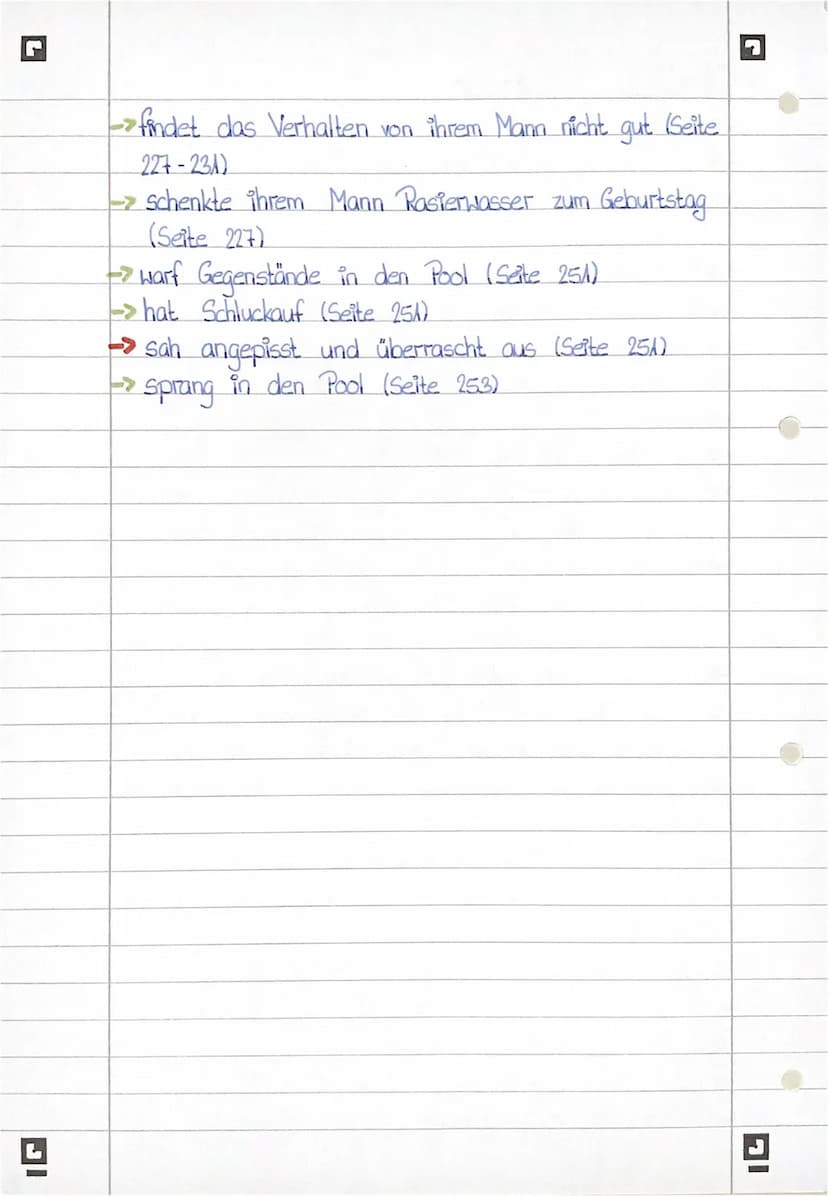 → findet das Verhalten von ihrem Mann nicht gut (Seite
227 - 231)
→ schenkte ihrem Mann Rasierwasser zum Geburtstag
(Seite 227)
→ warf Gegenstände in den Pool (Seite 251)
→ hat Schluckauf (Seite 251)
→ sah angepisst und überrascht aus (Seite 251)
→ sprang in den Pool (Seite 253)